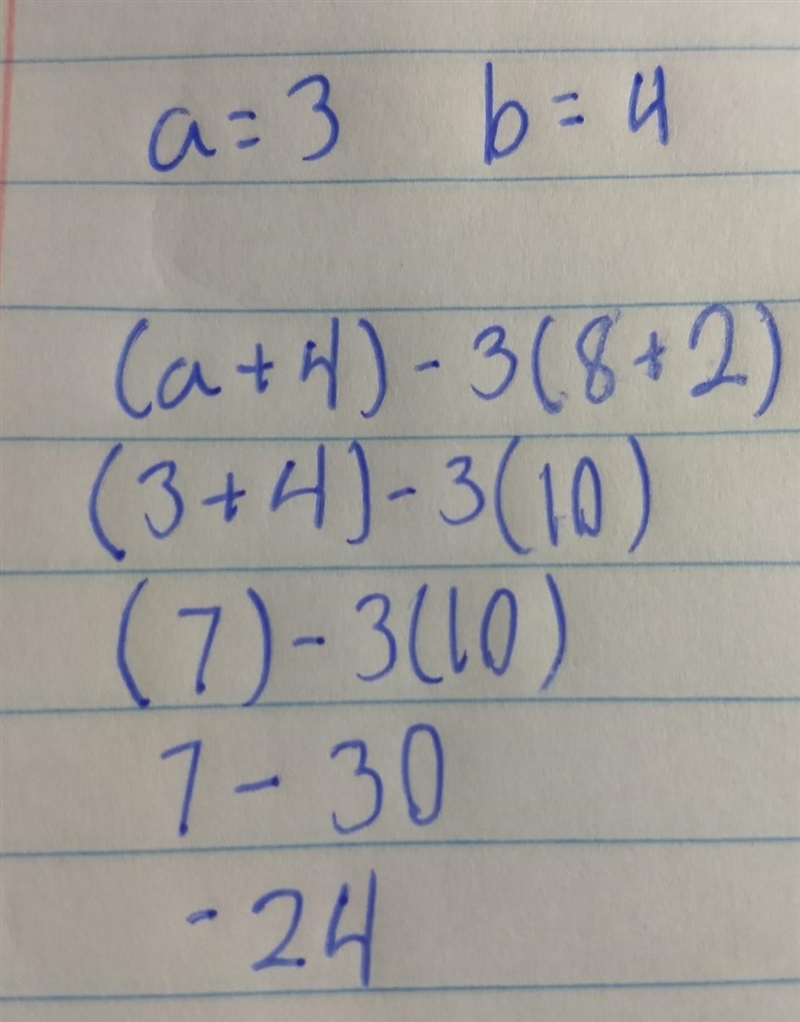 a = 3 b = 4
(a + 4) - 3(8 + 2)
(3 + 4) - 3(10)
(7) - 3(10)
7 - 30
- 24